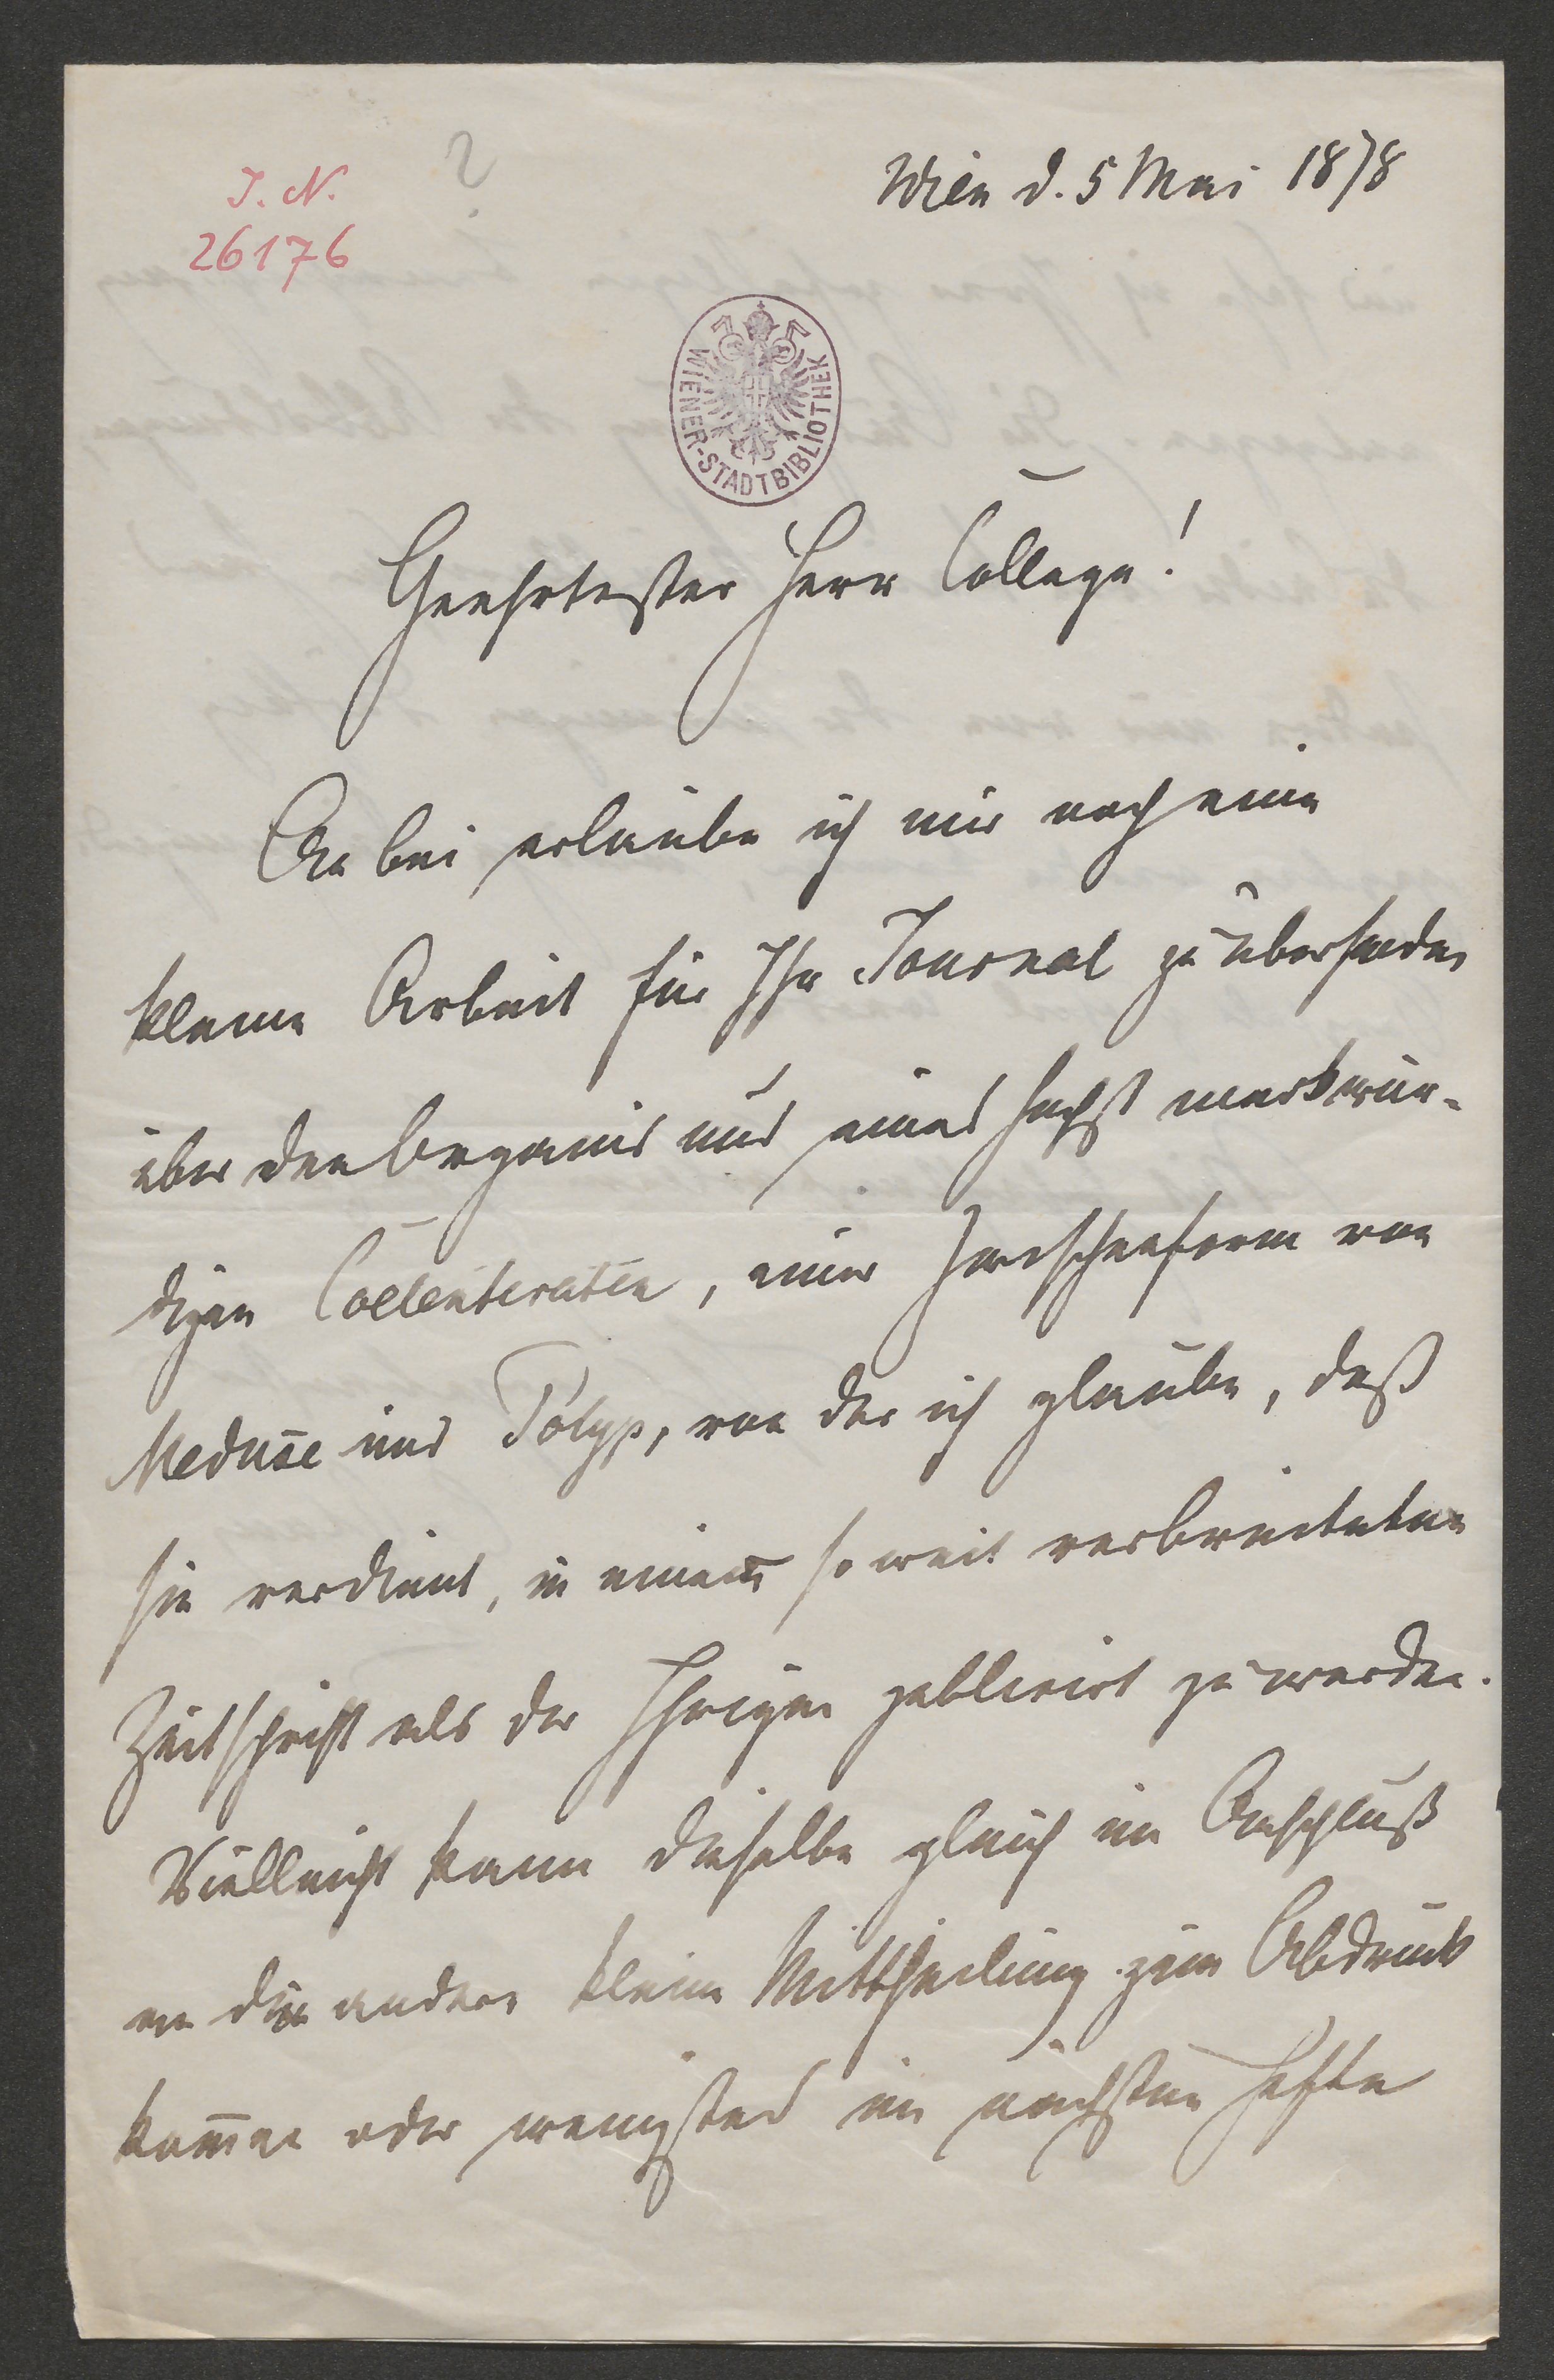 J. N.
26176
?
Wien d. 5 Mai 1878
WIENER-STADTBIBLIOTHEK
Geehrtester Herr College!
Anbei erlaube ich mir noch eine
kleine Arbeit für Ihr Journal zu übersenden
über den Organismus eines höchst merkwür-
digen Coelenteraten, einer Zwischenform von
Meduse und Polyp, von der ich glaube, daß
sie verdient, in einem so weit verbreiteten
Zeitschrift als der Ihrigen publicirt zu werden.
Vielleicht kann dieselbe gleich im Anschluß
an die andere kleine Mittheilung zum Abdruck
kom̅en oder wenigstens im nächsten Hefte